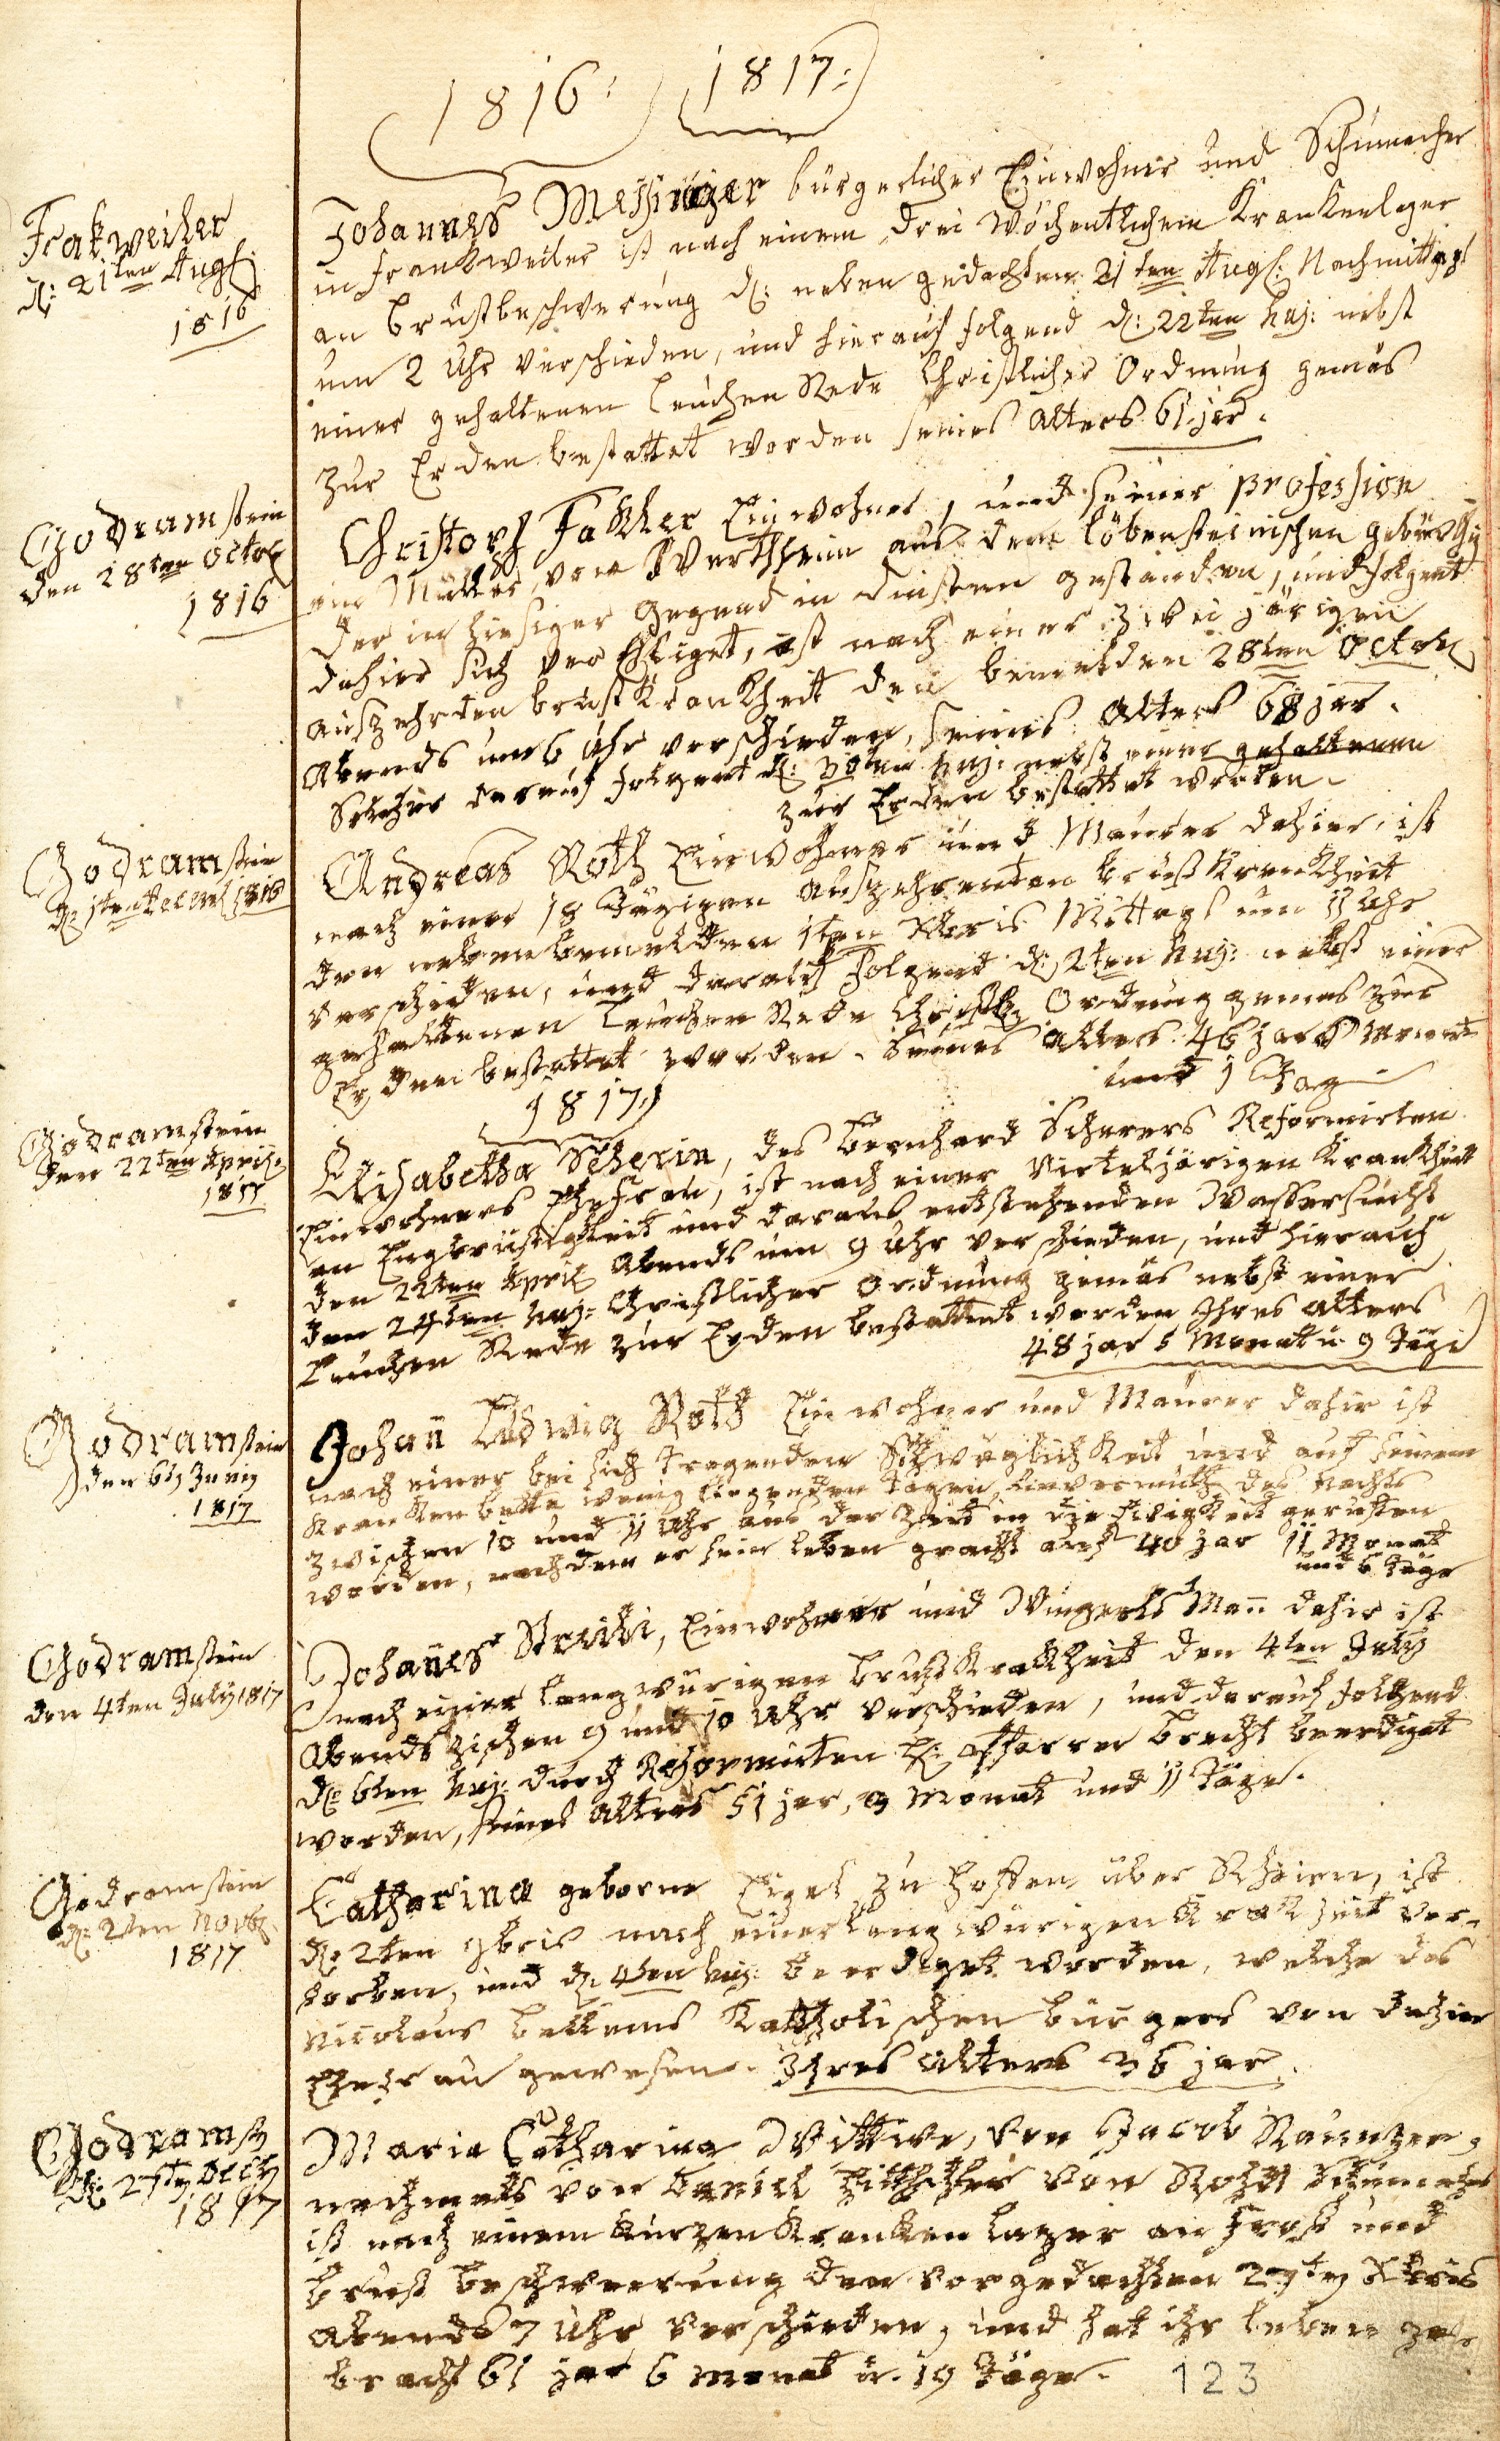 1816: 1817:
Frakweiler
d: 21ten Augs:
1816
Johannes Messinger bürgerlicher Einwohner und Schumacher
in Frankweiler ist nach einem drei Wöchentlichem Krankenlager
an brustbeschwerung d: neben gedachten 21ten Augs: Nachmittags
um 2 Uhr verschieden, und hierauf folgend d: 22ten huj: nebst
einer gehaltenen leuchen Rede Christlicher Ordnung gemäs
zur Erden bestattet worden seines Alters 61 jar.
Godramstein
den 28ten Octob
1816
Christoph Einwohner, und seiner profession
ein Müller, von Wertheim aus dem löbensteinischen
der in hiesiger Gegend in dinsten gestanden, und folgent
dahier sich verehliget, ist nach einer zwei järigen
auszehrten brust Krankheit den bemelden 28ten Octob
Abends um 6 Uhr verschieden, seines Alters 68 jar.
darauf folgent d: 30ten huj: nebst einer gehaltenen
zur Erden bestattet worden.
Godramstein
d: 1ten 1816
Andreas Roth Einwohner und Maurer dahier, ist
nach einer 18 Tägigen auszehrenden brust Krankheit
den neben bemeldten 1ten Mittags um 11 Uhr
verschieden, und darauf folgend d: 2ten huj: nebst einer
gehaltenen leuchen Rede Ordnung gemäs zur
Erden bestattet worden. Seines Alters 46 jar 8 Monat
und 1 Tag
1817
Godramstein
den 22ten April
1817
Elisabetha Scherin, des Bernhard Scherers Reformirten
Einwohners Ehefrau, ist nach einer Virteljärigen Krankheit
an Engbrüstigkeit und daraus entstehenden Wassersucht
den 22ten April Abends um 9 Uhr verschieden, und hierauf
den 24ten huj: Christlicher Ordnung gemäs nebst einer
Leuchen Rede zur Erden bestattet worden Ihres alters
48 jar 5 Monat u. 9 Täge
Godramstein
den 6ten Juny
1817
Johan Ludwig Roth Einwohner und Maurer dahir ist
nach einer bei sich tragenden und auf seinem
Krankenbette wenig liegenden Tagen, unvermuth des Nachts
zwischen 10 und 11 Uhr aus der Zeit in die Ewigkeit geruffen
worden, nachdem er sein Leben gracht auf 40 jar 11 Monat
und 6 Täge
Godramstein
den 4ten July 1817
Johanes Einwohner und Wingerts Man dahir ist
nach einer langwürigen brust Krakheit den 4ten July
Abends zischen 9 und 10 Uhr verschieden, und darauf folgend
d: 6ten huj: durch Reformirten H: Pfarrer Brecht beerdiget
worden, seines Alters 51 jar, 9 Monat und 11 Täge.
Godramstein
d: 2ten Novb:
1817
Catharina geborne zu Hoffen über Rhein, ist
d: 2ten 9bris nach einer langwürigen Krakheit ver-
storben, und d: 4ten huj: beerdiget worden, welche des
Nicolaus Katholischen bürgers von dahier
Ehefrau gewesen. Ihres Alters 36 jar.
Godramst
1817
Maria Catharina Wittwe, von Jacob
nachmals von Daniel von
ist nach einem kurzen Kranken lager an Frost und
Brust beschwerung den vorgedachten
Abends 7 Uhr verschieden, und hat ihr leben ge-
bracht 61 jar 6 Monat u. 19 Täge.
123